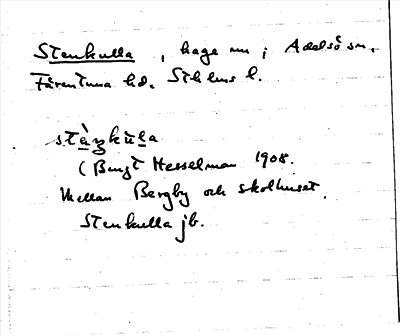 Stenkulla, hage nu i Adelsö sn,
Färentuna hd, Sthlms l.
stè̱ŋku̱la
(Bengt Hesselman 1908.
Mellan Bergby och skolhuset.
Stenkulla jb.